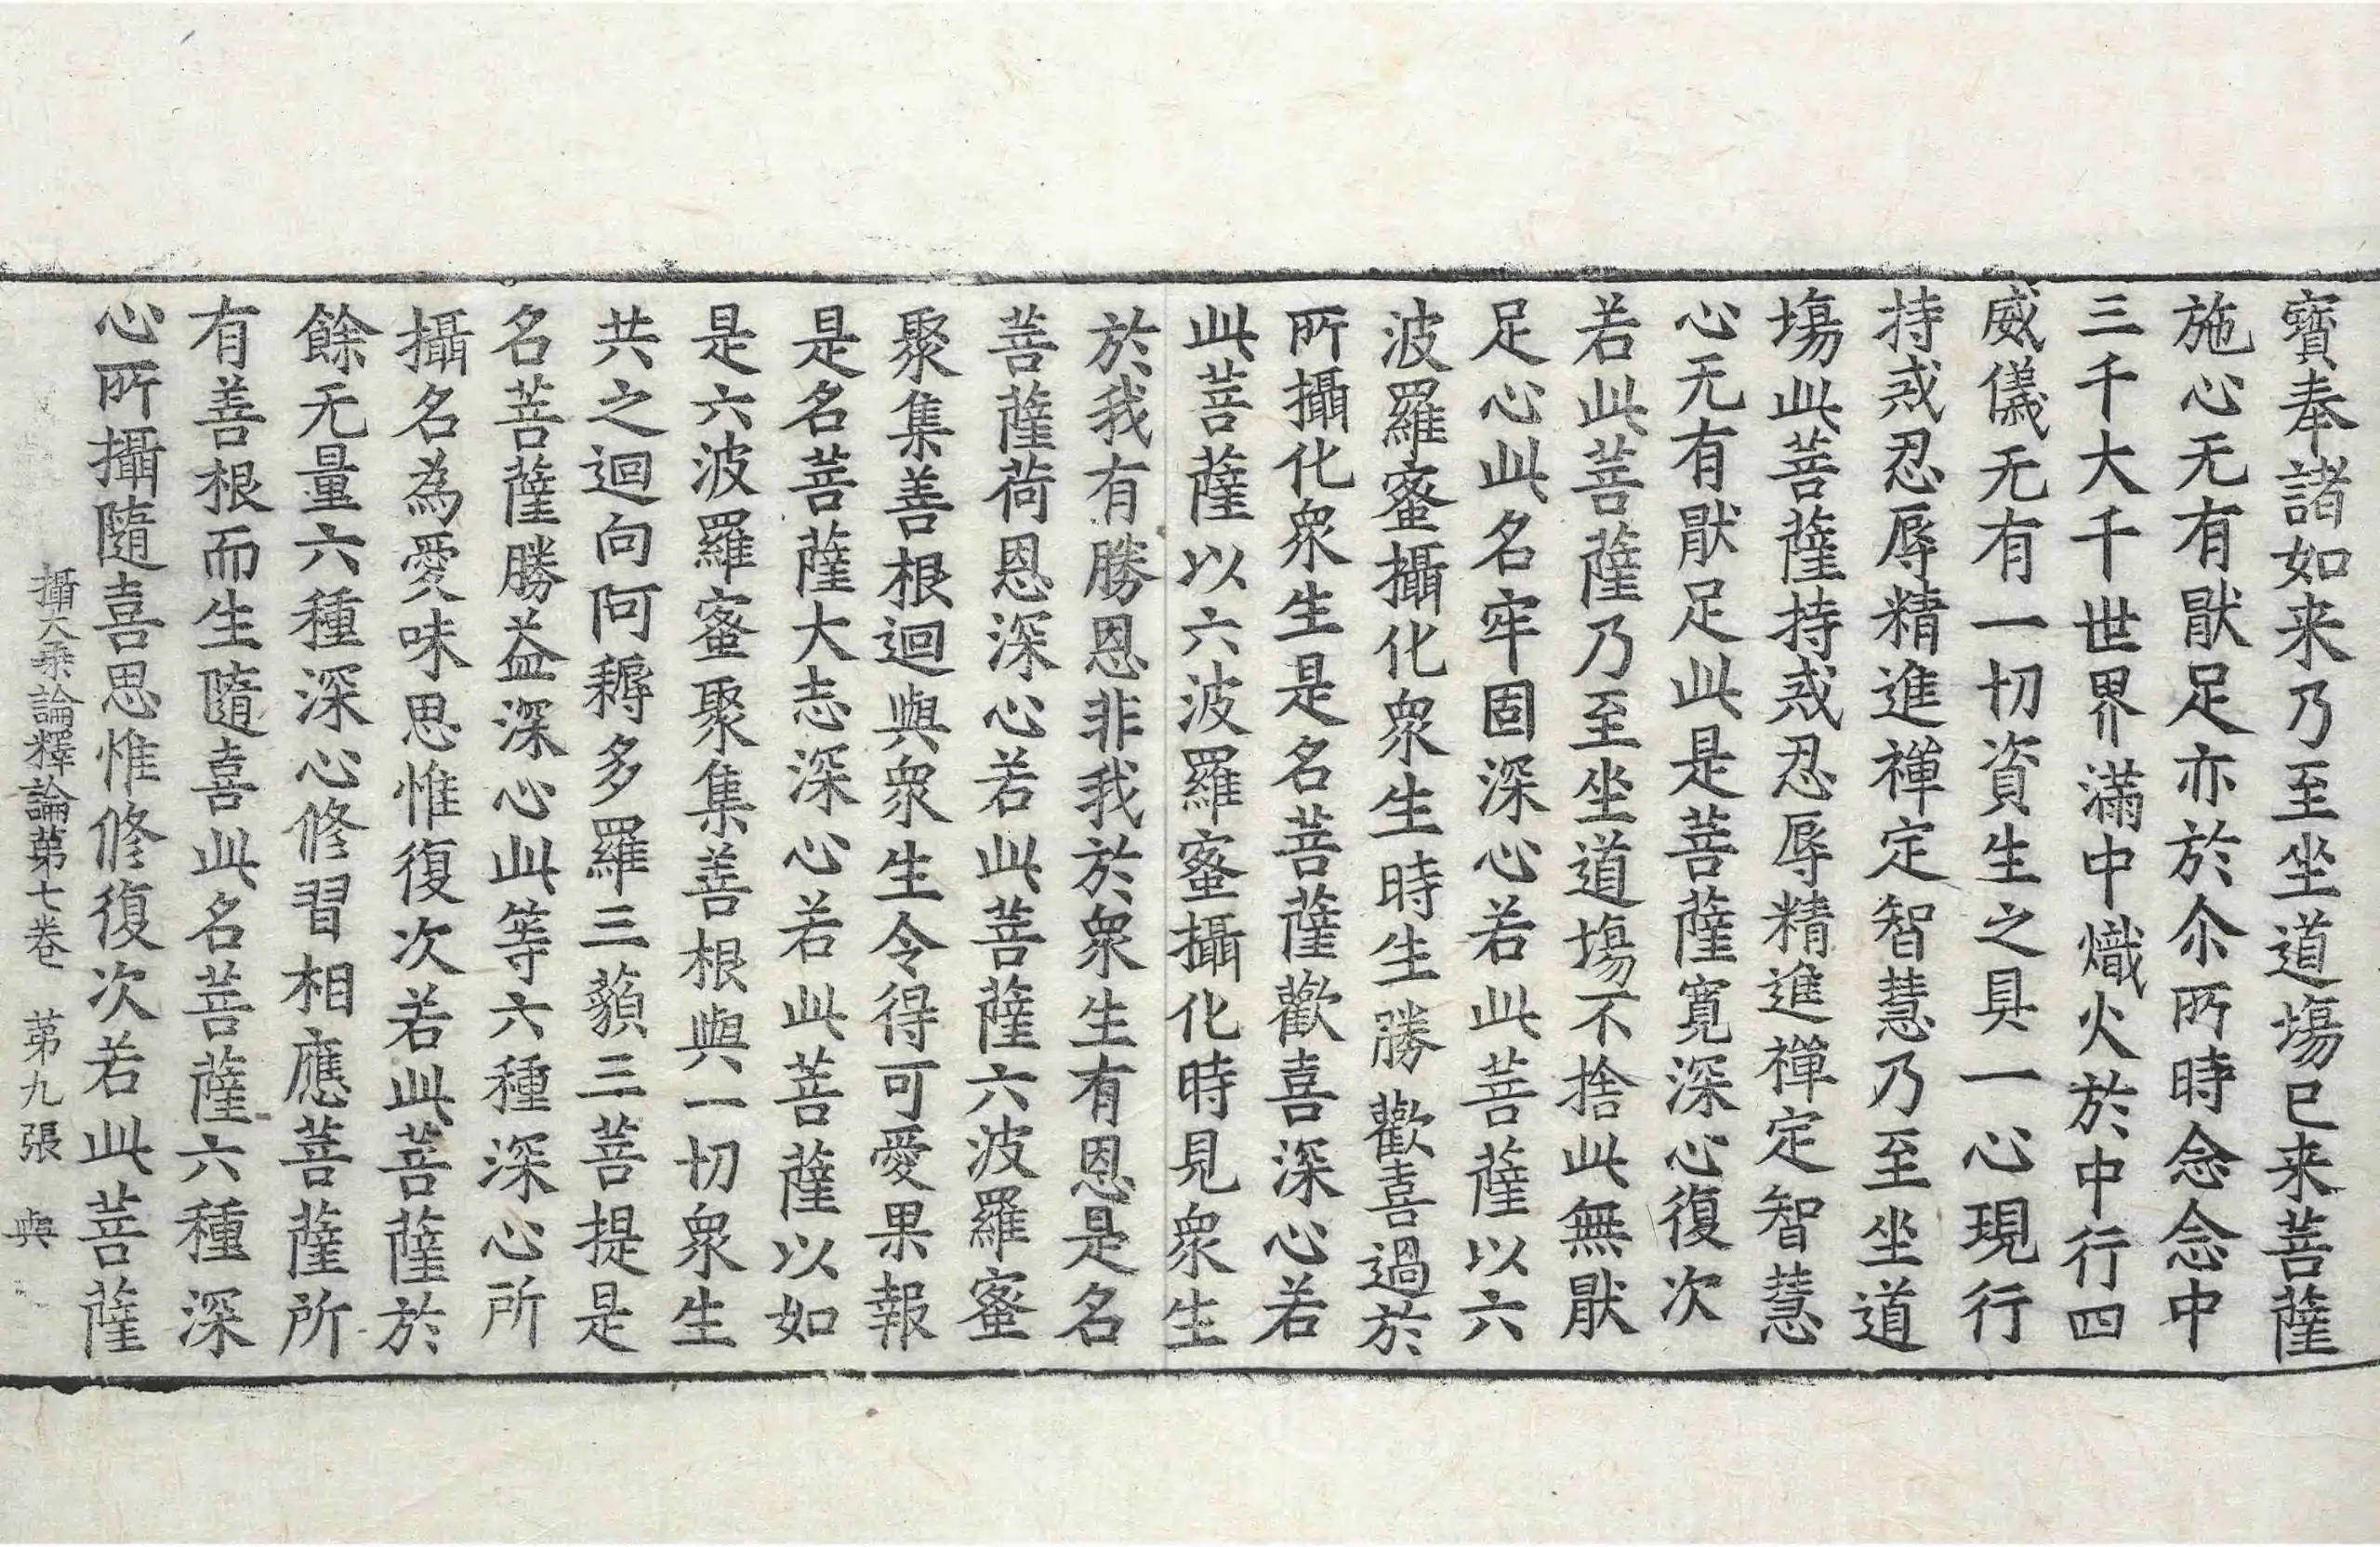 寶奉諸如来乃至坐道塲已来菩薩
施心无有猒足亦於尒所時念念中
三千大千世界滿中熾火於中行四
威儀无有一切資生之具一心現行
持戒忍辱精進禪定智慧乃至坐道
塲此菩薩持戒忍辱精進禪定智慧
心无有猒足此是菩薩寬深心復次
若此菩薩乃至坐道塲不捨此無猒
足心此名牢固深心若此菩薩以六
波羅蜜攝化衆生時生勝歡喜過於
所攝化衆生是名菩薩歡喜深心若
此菩薩以六波羅蜜攝化時見衆生
於我有勝恩非我於衆生有恩是名
菩薩荷恩深心若此菩薩六波羅蜜
聚集善根迴與衆生令得可愛果報
是名菩薩大志深心若此菩薩以如
是六波羅蜜聚集善根與一切衆生
共之迴向阿耨多羅三藐三菩提是
名菩薩勝益深心此等六種深心所
攝名為愛味思惟復次若此菩薩於
餘无量六種深心修習相應菩薩所
有善根而生隨喜此名菩薩六種深
心所攝隨喜思惟修復次若此菩薩
攝大乗論釋論第七卷 第九張 與